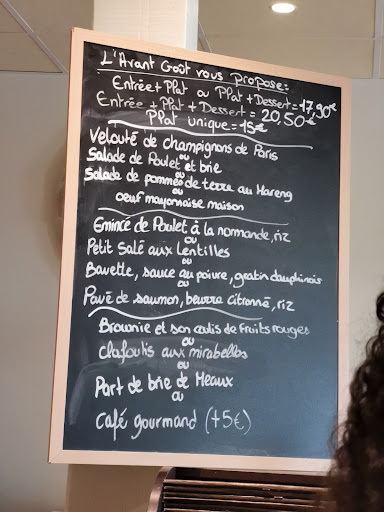 L'Avant Goût vous propose:
Entrée+Plat ou Plat+Dessert=17,90€
Entrée+Plat+Dessert=20,50€
Plat unique=15€
Velouté de champignons de Paris
ou
Salade de Poulet et brie
ou
Salade de pommes de terre au Hareng
ou
oeuf mayonnaise maison
Emincé de Poulet à la normande, riz
ou
Petit Salé aux Lentilles
ou
Bavette, sauce au poivre, gratin dauphinois
ou
Pavé de saumon, beurre citronné, riz
Brownie et son coulis de fruits rouges
ou
Clafoutis aux mirabelles
ou
Part de brie de Meaux
ou
Café gourmand (+5€)